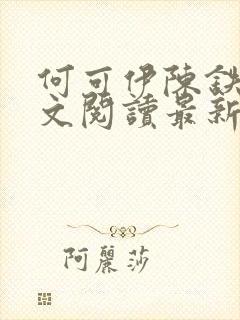 何可伊陳鉄
文閱讀最新
阿麗莎